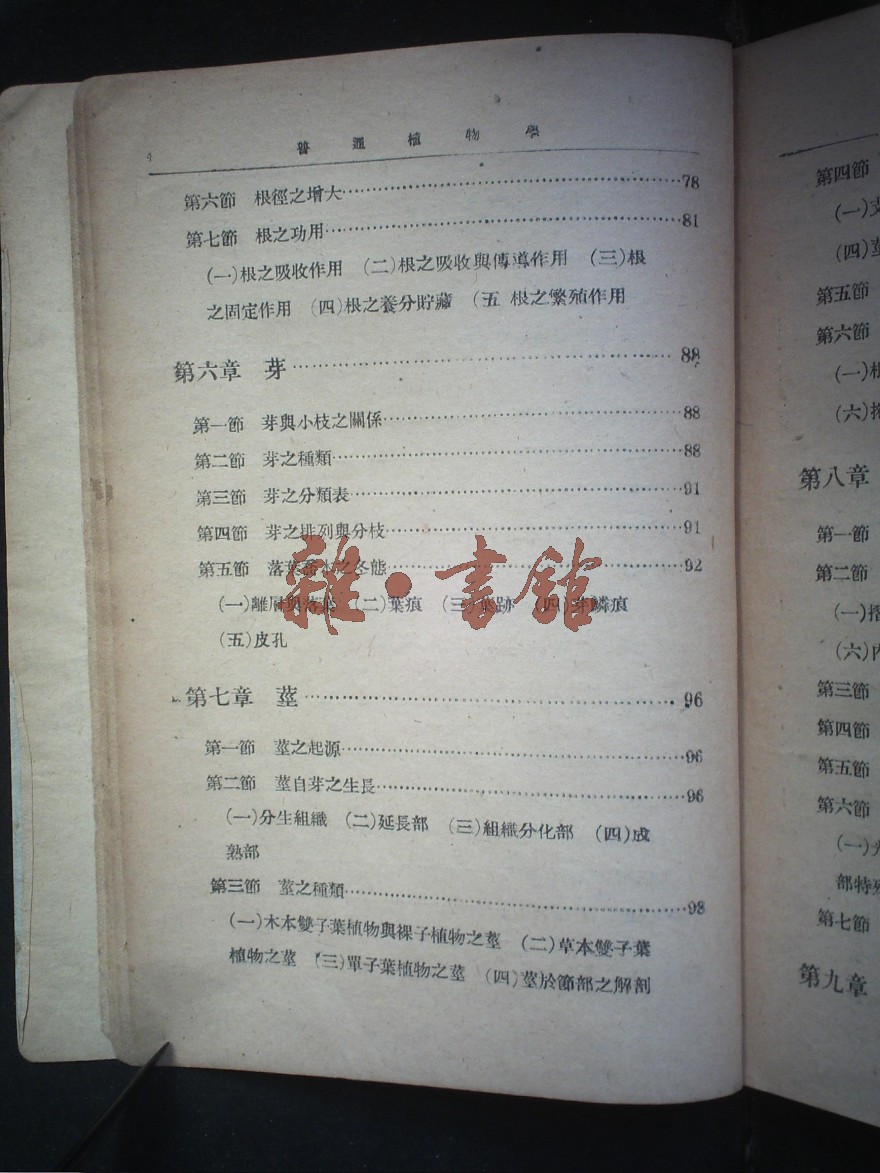 4 普通植物學
第六節 根徑之增大…………78
第七節 根之功用…………81
(一)根之吸收作用 (二)根之吸收與傳導作用 (三)根
之固定作用 (四)根之養分貯藏 (五 根之繁殖作用
第六章 芽…………88
第一節 芽與小枝之關係…………88
第二節 芽之種類…………88
第三節 芽之分類表…………91
第四節 芽之排列與分枝…………91
第五節 落葉喬木之冬態…………92
(一)離層與落葉 (二)葉痕 (三)葉跡 (四)芽鱗痕
(五)皮孔
雜·書館
第七章 莖…………96
第一節 莖之起源…………96
第二節 莖自芽之生長…………96
(一)分生組織 (二)延長部 (三)組織分化部 (四)成
熟部
第三節 莖之種類…………98
(一)木本雙子葉植物與裸子植物之莖 (二)草本雙子葉
植物之莖 (三)單子葉植物之莖 (四)莖於節部之解剖
第四節
(一)
(四)
第五節
第六節
(一)
(六)
第八章
第一節
第二節
(一)
(六)內
第三節
第四節
第五節
第六節
(一)
部特
第七節
第九章